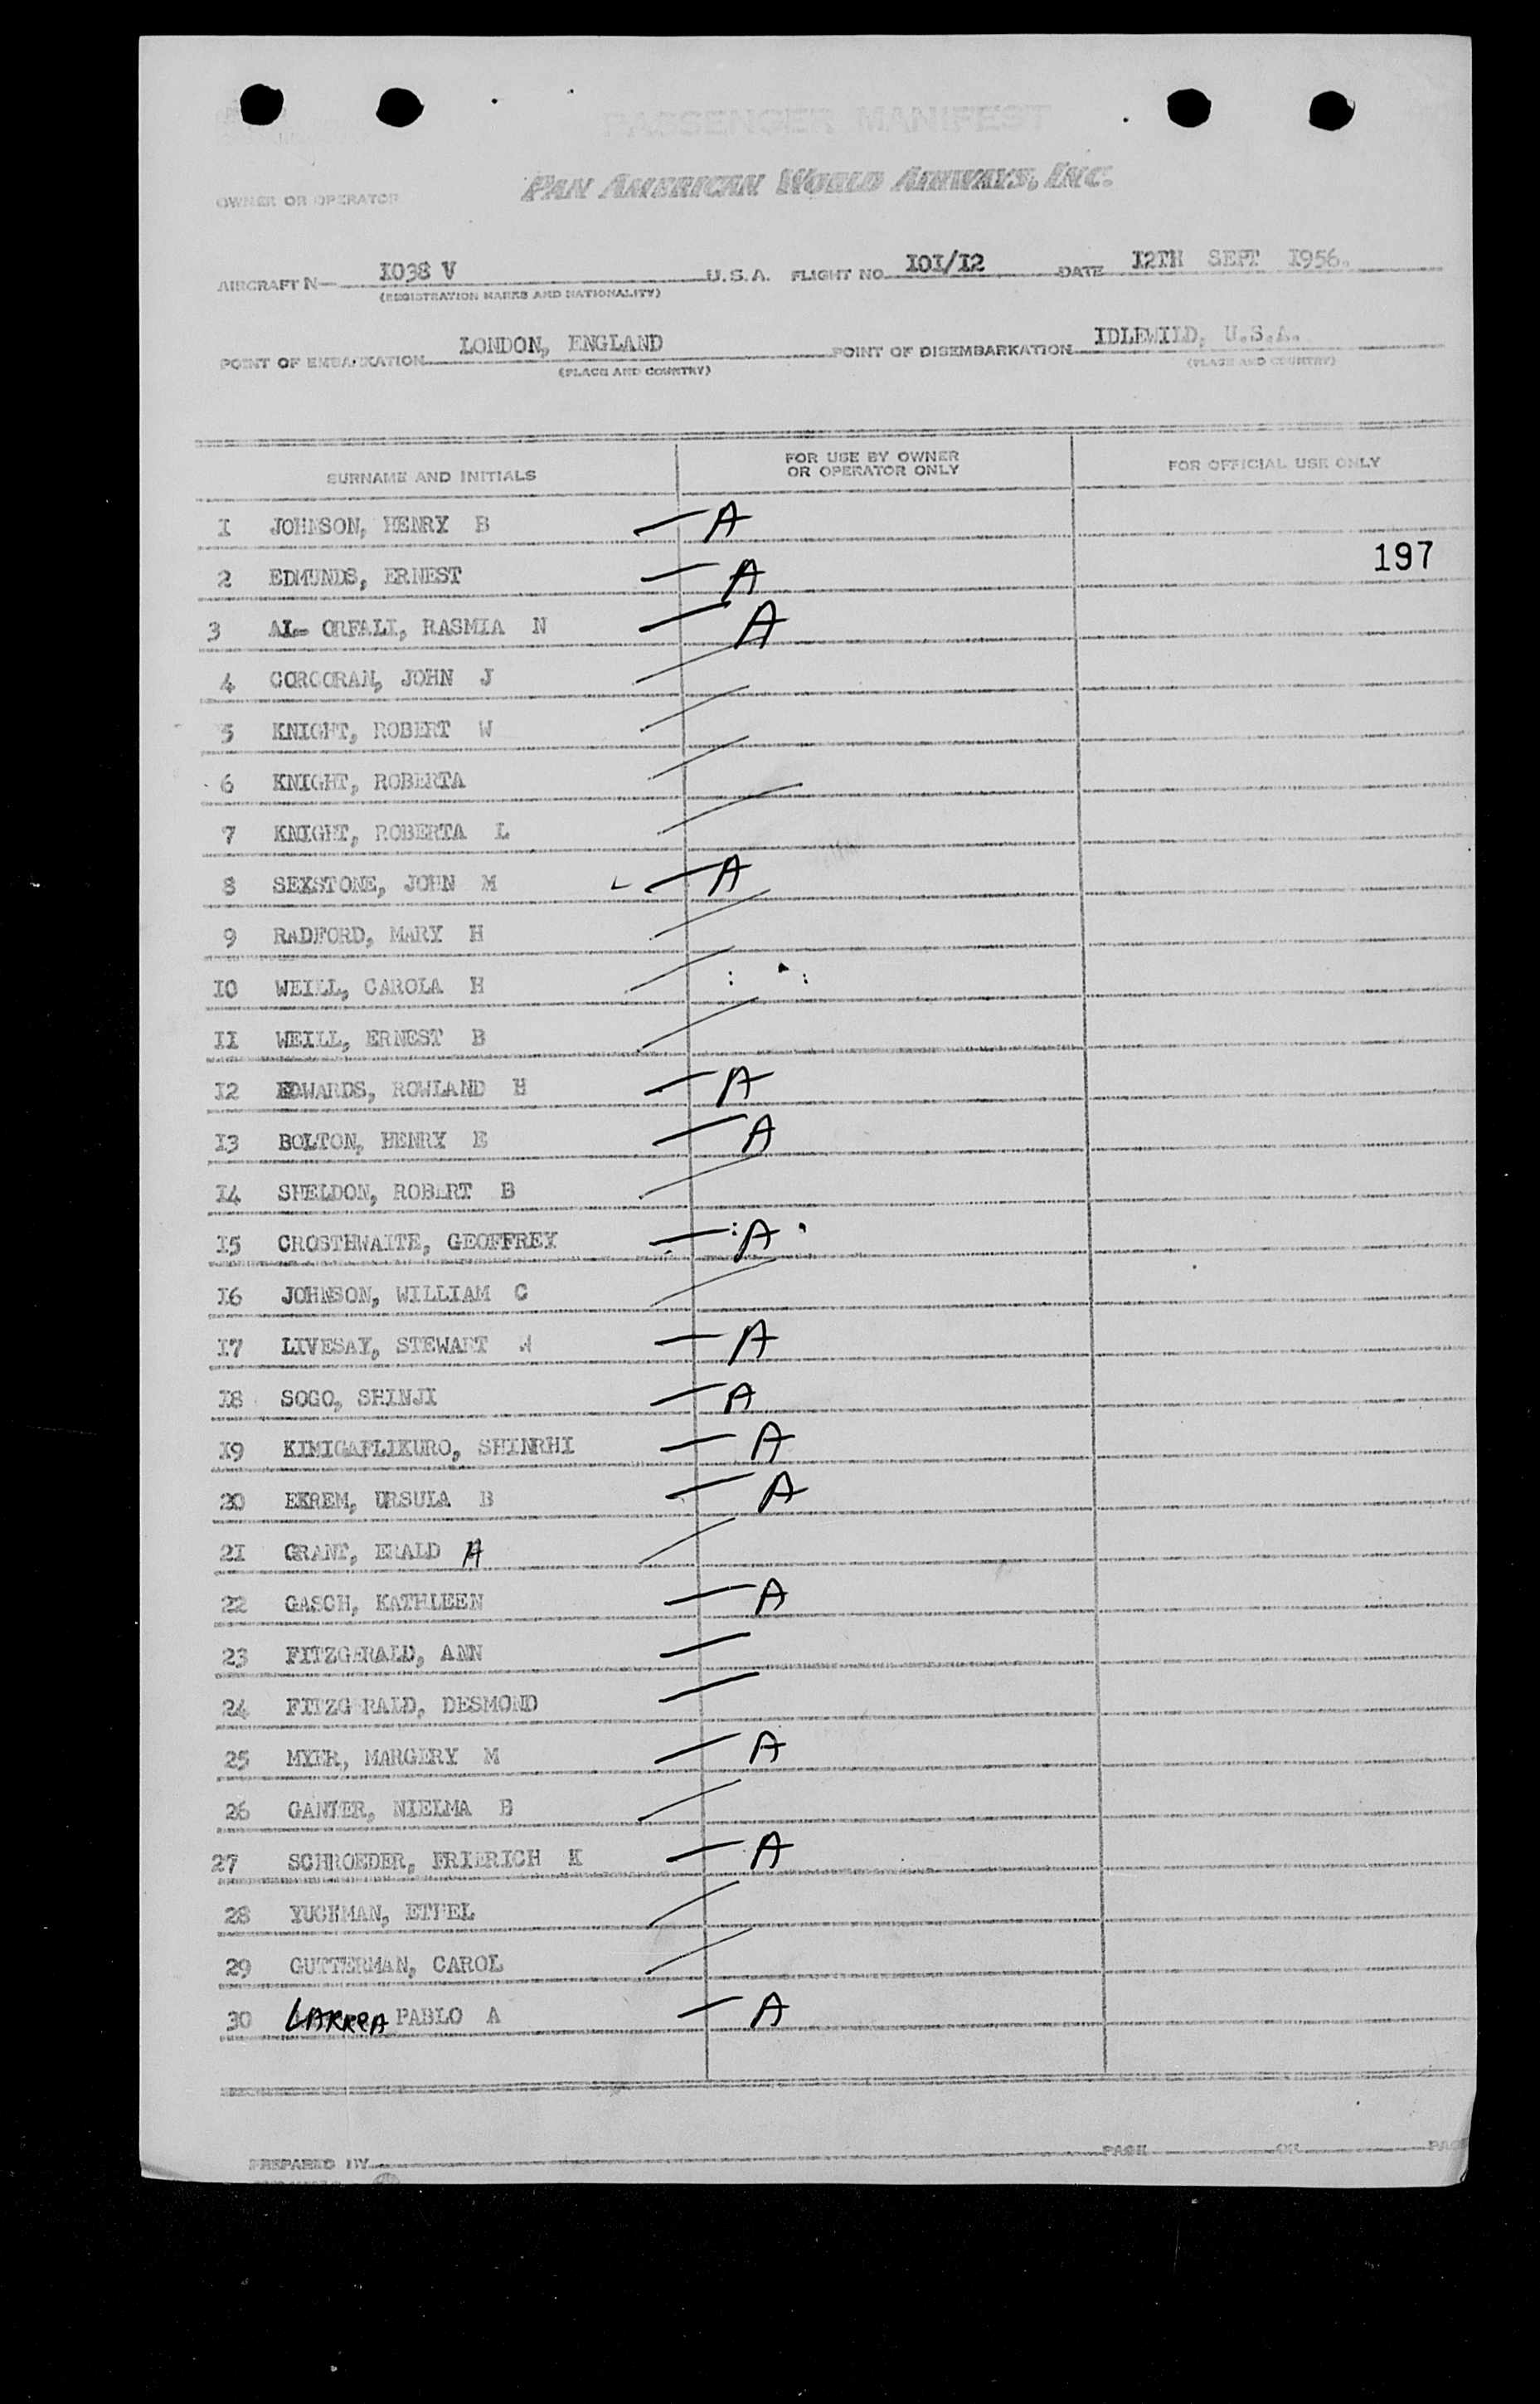 PASSENGER MANIFEST
OWNER OR OPERATOR PAN AMERICAN WORLD AIRWAYS, INC.
AIRCRAFT N- 1038 V U.S.A. FLIGHT NO. 101/12 DATE 12TH SEPT 1956.
(REGISTRATION MARKS AND NATIONALITY)
POINT OF EMBARKATION LONDON, ENGLAND POINT OF DISEMBARKATION IDLEWILD, U.S.A.
(PLACE AND COUNTRY) (PLACE AND COUNTRY)
SURNAME AND INITIALS FOR USE BY OWNER OR OPERATOR ONLY FOR OFFICIAL USE ONLY
1 JOHNSON, HENRY B — A
197
2 EDMUNDS, ERNEST — A
3 AL- ORFALI, RASMIA N — A
4 CORCORAN, JOHN J
5 KNIGHT, ROBERT W
6 KNIGHT, ROBERTA
7 KNIGHT, ROBERTA L
8 SEXSTONE, JOHN M — A
9 RADFORD, MARY H
10 WEILL, CAROLA H
11 WEILL, ERNEST B
12 EDWARDS, ROWLAND H — A
13 BOLTON, HENRY E — A
14 SHELDON, ROBERT B
15 CROSTHWAITE, GEOFFREY — A
16 JOHNSON, WILLIAM C
17 LIVESAY, STEWART — A
18 SOGO, SHINJI — A
19 KIMIGAFLIKURO, SHINRHI — A
20 EKREM, URSULA B — A
21 GRANT, ERALD A
22 GASCH, KATHLEEN — A
23 FITZGERALD, ANN —
24 FITZG RALD, DESMOND —
25 MYER, MARGERY M — A
26 GANTER, NIELMA B
27 SCHROEDER, FRIERICH K — A
28 YUCHMAN, ETHEL
29 GUTTERMAN, CAROL
30 LARREA PABLO A — A
PREPARED BY PAGE OF PAGE